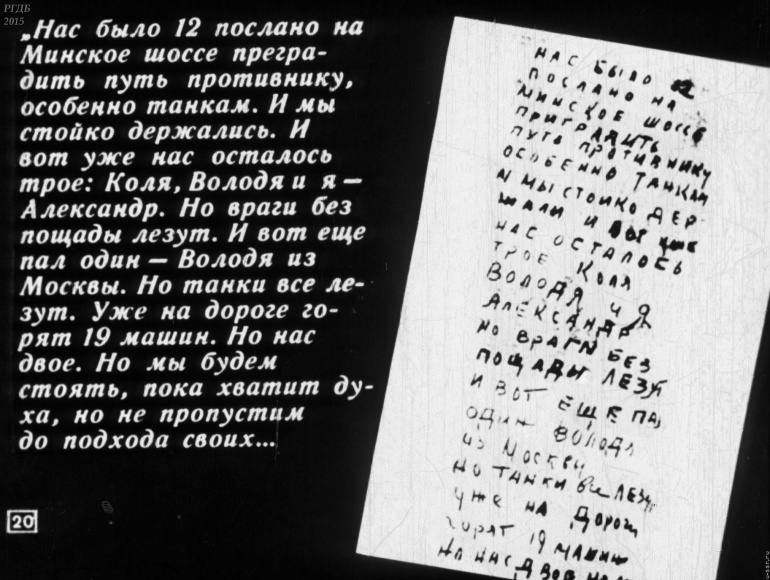 РГДБ
2015
„Нас было 12 послано на
Минское шоссе прегра-
дить путь противнику,
особенно танкам. И мы
стойко держались. И
вот уже нас осталось
трое: Коля, Володя и я —
Александр. Но враги без
пощады лезут. И вот еще
пал один — Володя из
Москвы. Но танки все ле-
зут. Уже на дороге го-
рят 19 машин. Но нас
двое. Но мы будем
стоять, пока хватит ду-
ха, но не пропустим
до подхода своих...
20
НАС БЫЛО 12
ПОСЛАНО НА
МИНСКОЕ ШОССЕ
ПРИГРАДИТЬ
ПУТЬ ПРОТИВНИКУ
ОСОБЕННО ТАНКАМ
И МЫ СТОИКО ДЕР-
ЖАЛИ И ВОТ УЖЕ
НАС ОСТАЛОСЬ
ТРОЕ КОЛЯ
ВОЛОДЯ И Я
АЛЕКСАНДР
НО ВРАГИ БЕЗ
ПОЩАДЫ ЛЕЗУТ
И ВОТ ЕЩЕ ПАЛ
ОДИН ВОЛОДЯ
ИЗ МОСКВЫ
НО ТАНКИ ВСЕ ЛЕЗУТ
УЖЕ НА ДОРОГЕ
ГОРЯТ 19 МАШИН
НО НАС ДВОЕ